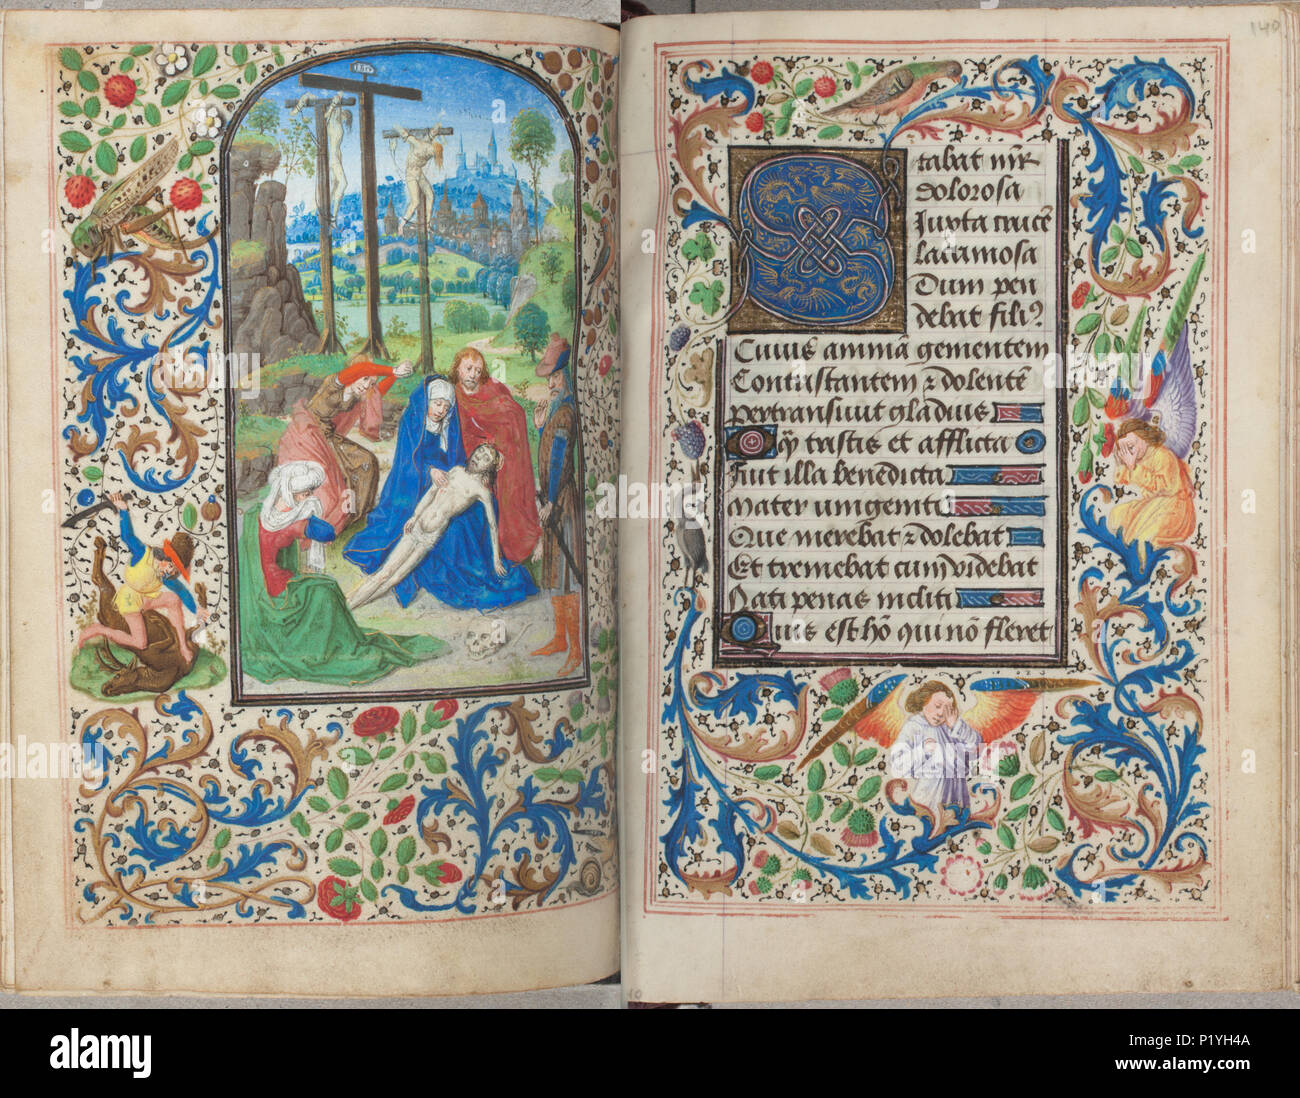 140
Stabat mr̄
dolorosa
Iuxta crucē
lacrimosa
Dum pen
debat filiꝰ
Cuius animā gementem
Contristantem ⁊ dolentē
pertransiuit gladius
O qͣ tristis et afflicta
fuit illa benedicta
mater unigeniti
Que merebat ⁊ dolebat
Et tremebat cum videbat
Nati penas incliti
Quis est hō qui nō fleret
alamy
Image ID: P1YH4A
www.alamy.com